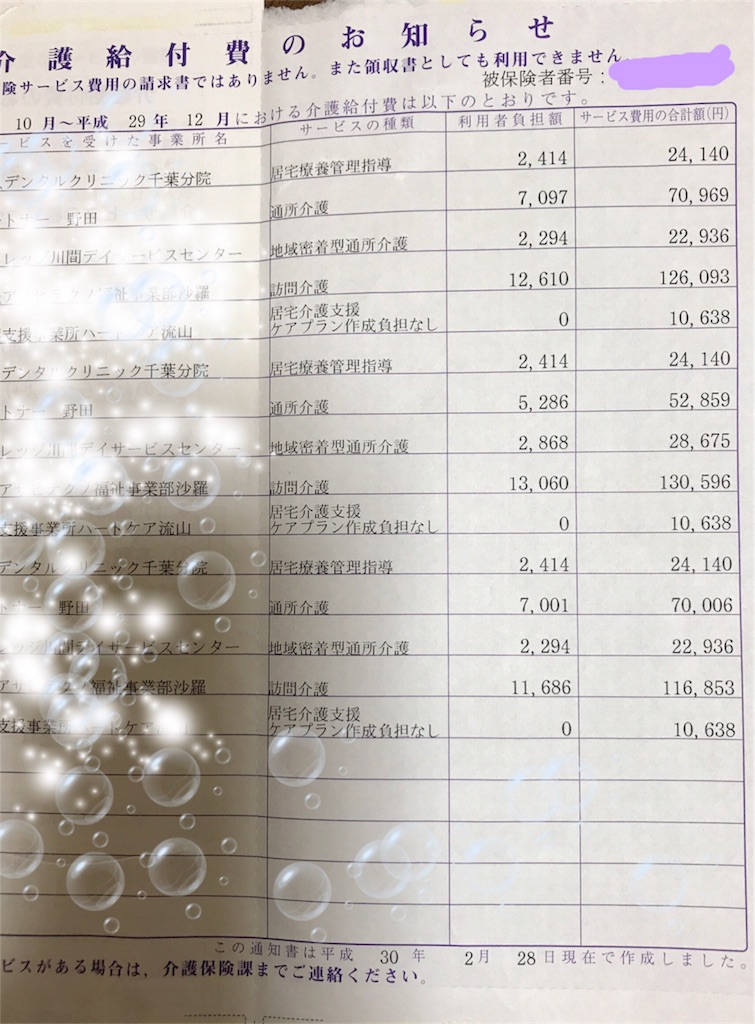 介護給付費のお知らせ
険サービス費用の請求書ではありません。また領収書としても利用できません。
被保険者番号：
10 月～平成 29 年 12 月における介護給付費は以下のとおりです。
ービスを受けた事業所名 サービスの種類 利用者負担額 サービス費用の合計額(円)
デンタルクリニック千葉分院 居宅療養管理指導 2,414 24,140
トナー 野田 通所介護 7,097 70,969
レッジ川間デイサービスセンター 地域密着型通所介護 2,294 22,936
福祉事業部沙羅 訪問介護 12,610 126,093
居宅介護支援
支援事業所ハートケア流山 ケアプラン作成負担なし 0 10,638
デンタルクリニック千葉分院 居宅療養管理指導 2,414 24,140
トナー 野田 通所介護 5,286 52,859
レッジ川間デイサービスセンター 地域密着型通所介護 2,868 28,675
福祉事業部沙羅 訪問介護 13,060 130,596
居宅介護支援
支援事業所ハートケア流山 ケアプラン作成負担なし 0 10,638
デンタルクリニック千葉分院 居宅療養管理指導 2,414 24,140
トナー 野田 通所介護 7,001 70,006
レッジ川間デイサービスセンター 地域密着型通所介護 2,294 22,936
福祉事業部沙羅 訪問介護 11,686 116,853
居宅介護支援
支援事業所ハートケア ケアプラン作成負担なし 0 10,638
この通知書は平成 30 年 2月 28日現在で作成しました。
ビスがある場合は、介護保険課までご連絡ください。